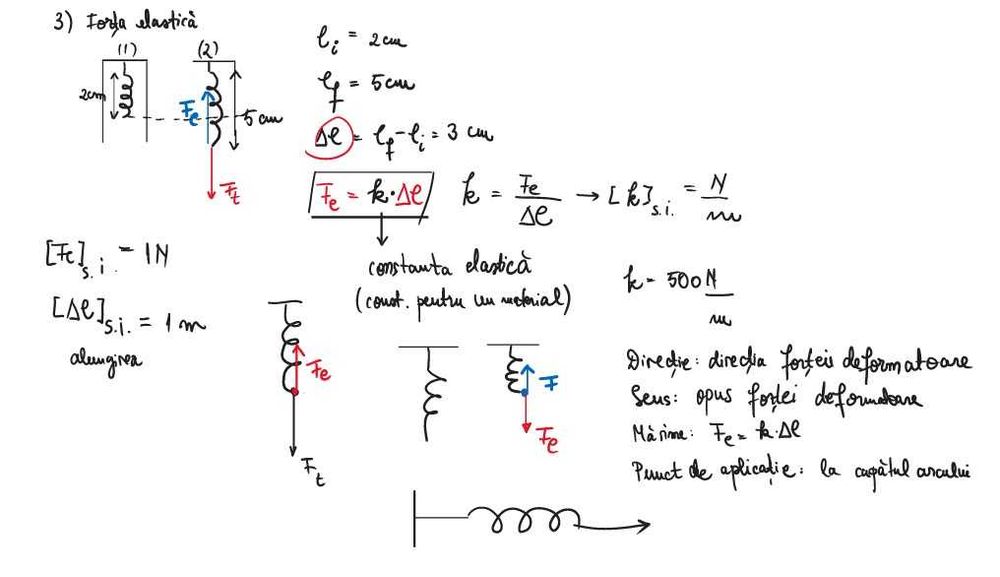 3) Forța elastică
(1) (2)
2cm
Fe
5 cm
Ft
li = 2cm
lf = 5cm
Δl = lf - li = 3 cm
Fe = k·Δl
k = Fe/Δl → [k]s.i. = N/m
constanta elastică
(const. pentru un material)
[Fe]s.i. = 1N
[Δl]s.i. = 1 m
alungirea
k = 500 N/m
Fe
Ft
F
Fe
Direcție: direcția forței deformatoare
Sens: opus forței deformatoare
Mărime: Fe = k·Δl
Punct de aplicație: la capătul arcului